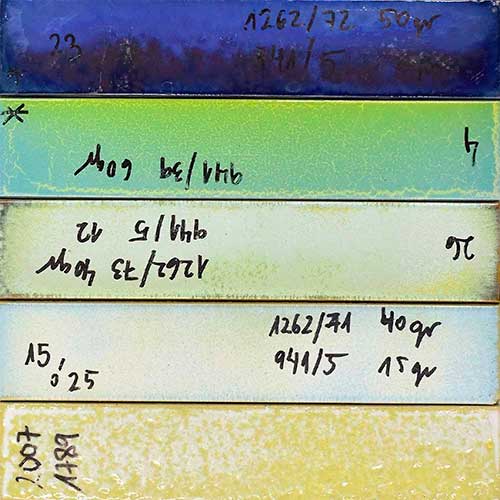 23
1262/72 50gr
941/5
4
941/39 60gr
26
1262/73 40gr
941/5 12
1262/71 40gr
941/5 15gr
15,
025
2007
1789